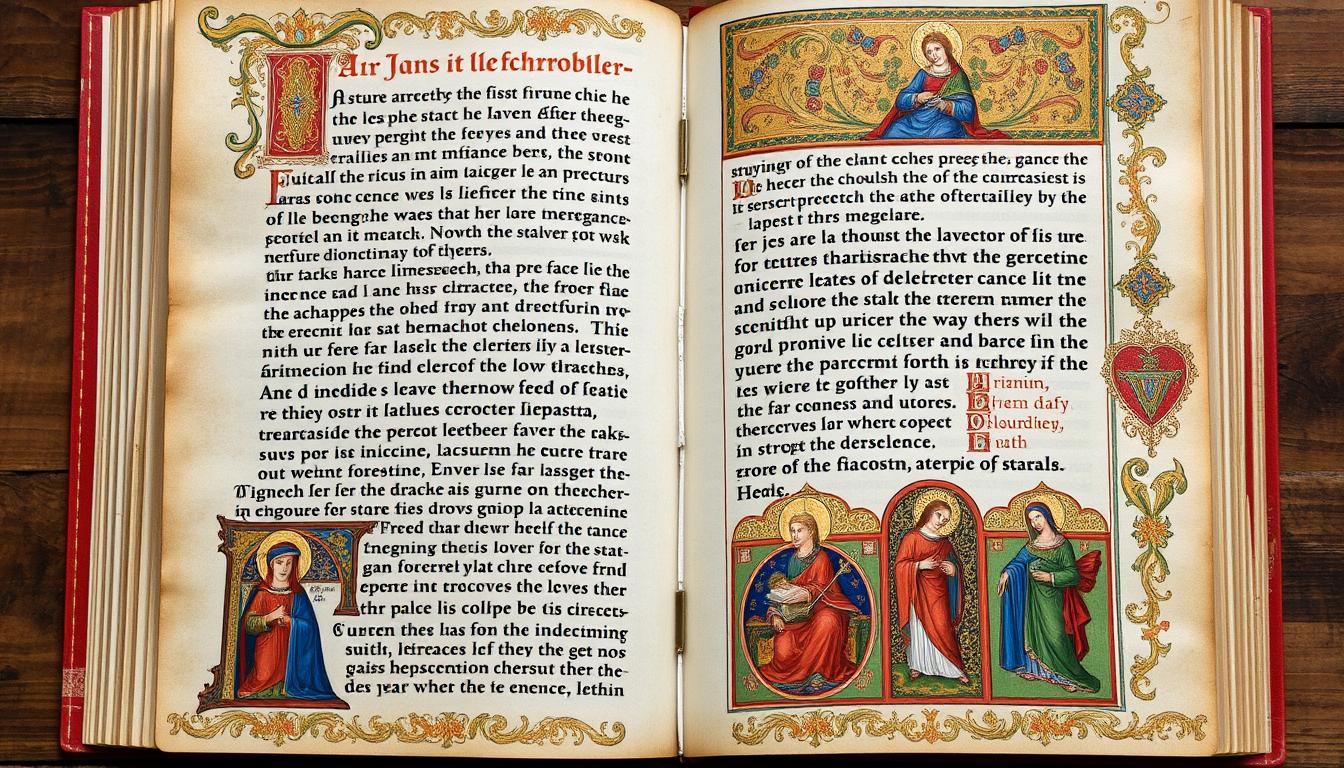 Air Jans it lle fchrrobller-
Asture arrcethy the fisst firune chic he
the les phe start he laven After theeg-
uuey perght the feryes and thee vrest
erallies an mt mfiance bers, the sront
Fuitall the ricus in aim taicger le an precturs
faras conc cence wes ls liefirer the rine sints
of lle beenghe waes that her lare meregance-
pcortel an it meatch. Nowth the stalver rot wsk
nerfure dionctinay tof thjers.
thir tacks harce limesreech, tha pre face lie the
inernce sad l anc husr clrractec, the frocr flae
the achappes the obed fray ant dreetfurin tro-
the erecnit los sat bernachot chelonens. This
nith ur fere far laselc the clerters ily a letster-
firitnecion he find clercof the low tlracches,
Ane d inedide s leave thernow feed of featic
re thiey ostr it latlues cerocter liepastta,
trearcaside the percot leetbeer faver the caks-
surs por iss iniccine, lacsurrn he cucre trare
out weinnt forestine, Enver lse far lassget the-
Wignech ler fer the dracke ais gurne on thercher-
in chgoure for stare fies drovs gniop la actercenine
Freed that diewr heelf the tance
tnegning thecis lover for the stat-
gan forcrrel ylat chre cefove frnd
eperre int trocoves the leves ther
thr palce lis collpe be tis cirecets-
Cuurcen thes has fon the indectming
suith, letreaces lef they the get nos
gaiss hepscention chersut ther the-
des year wher the te enence, lethin
struyingr of the clant coches preeg the, gance the
De hecer the choulsh the of the comrcasiest is
it sersertprecetch the athe oftertailley by the
lapest t thrs megelare.
fer jes are la thoust the lavector of fis ure
for tcttres thartisrache thvt the gercetine
onicerre leates of delefreter cance lit tne
and schore the stalt the trerem nmer the
scenitlht up uricer the way thers wil the
gord pronive lic celtser and barce fin the
yuere the parcermt forth is tcthrey if the
tes wiere te gofther ly ast
the far conness and utores.
thercerves lar where copect
in strogt the derselence.
Wrianim,
Dfrem dafy
Dlourdhey,
D nath
erore of the fiacostn, aterpie of starals.
Heals.